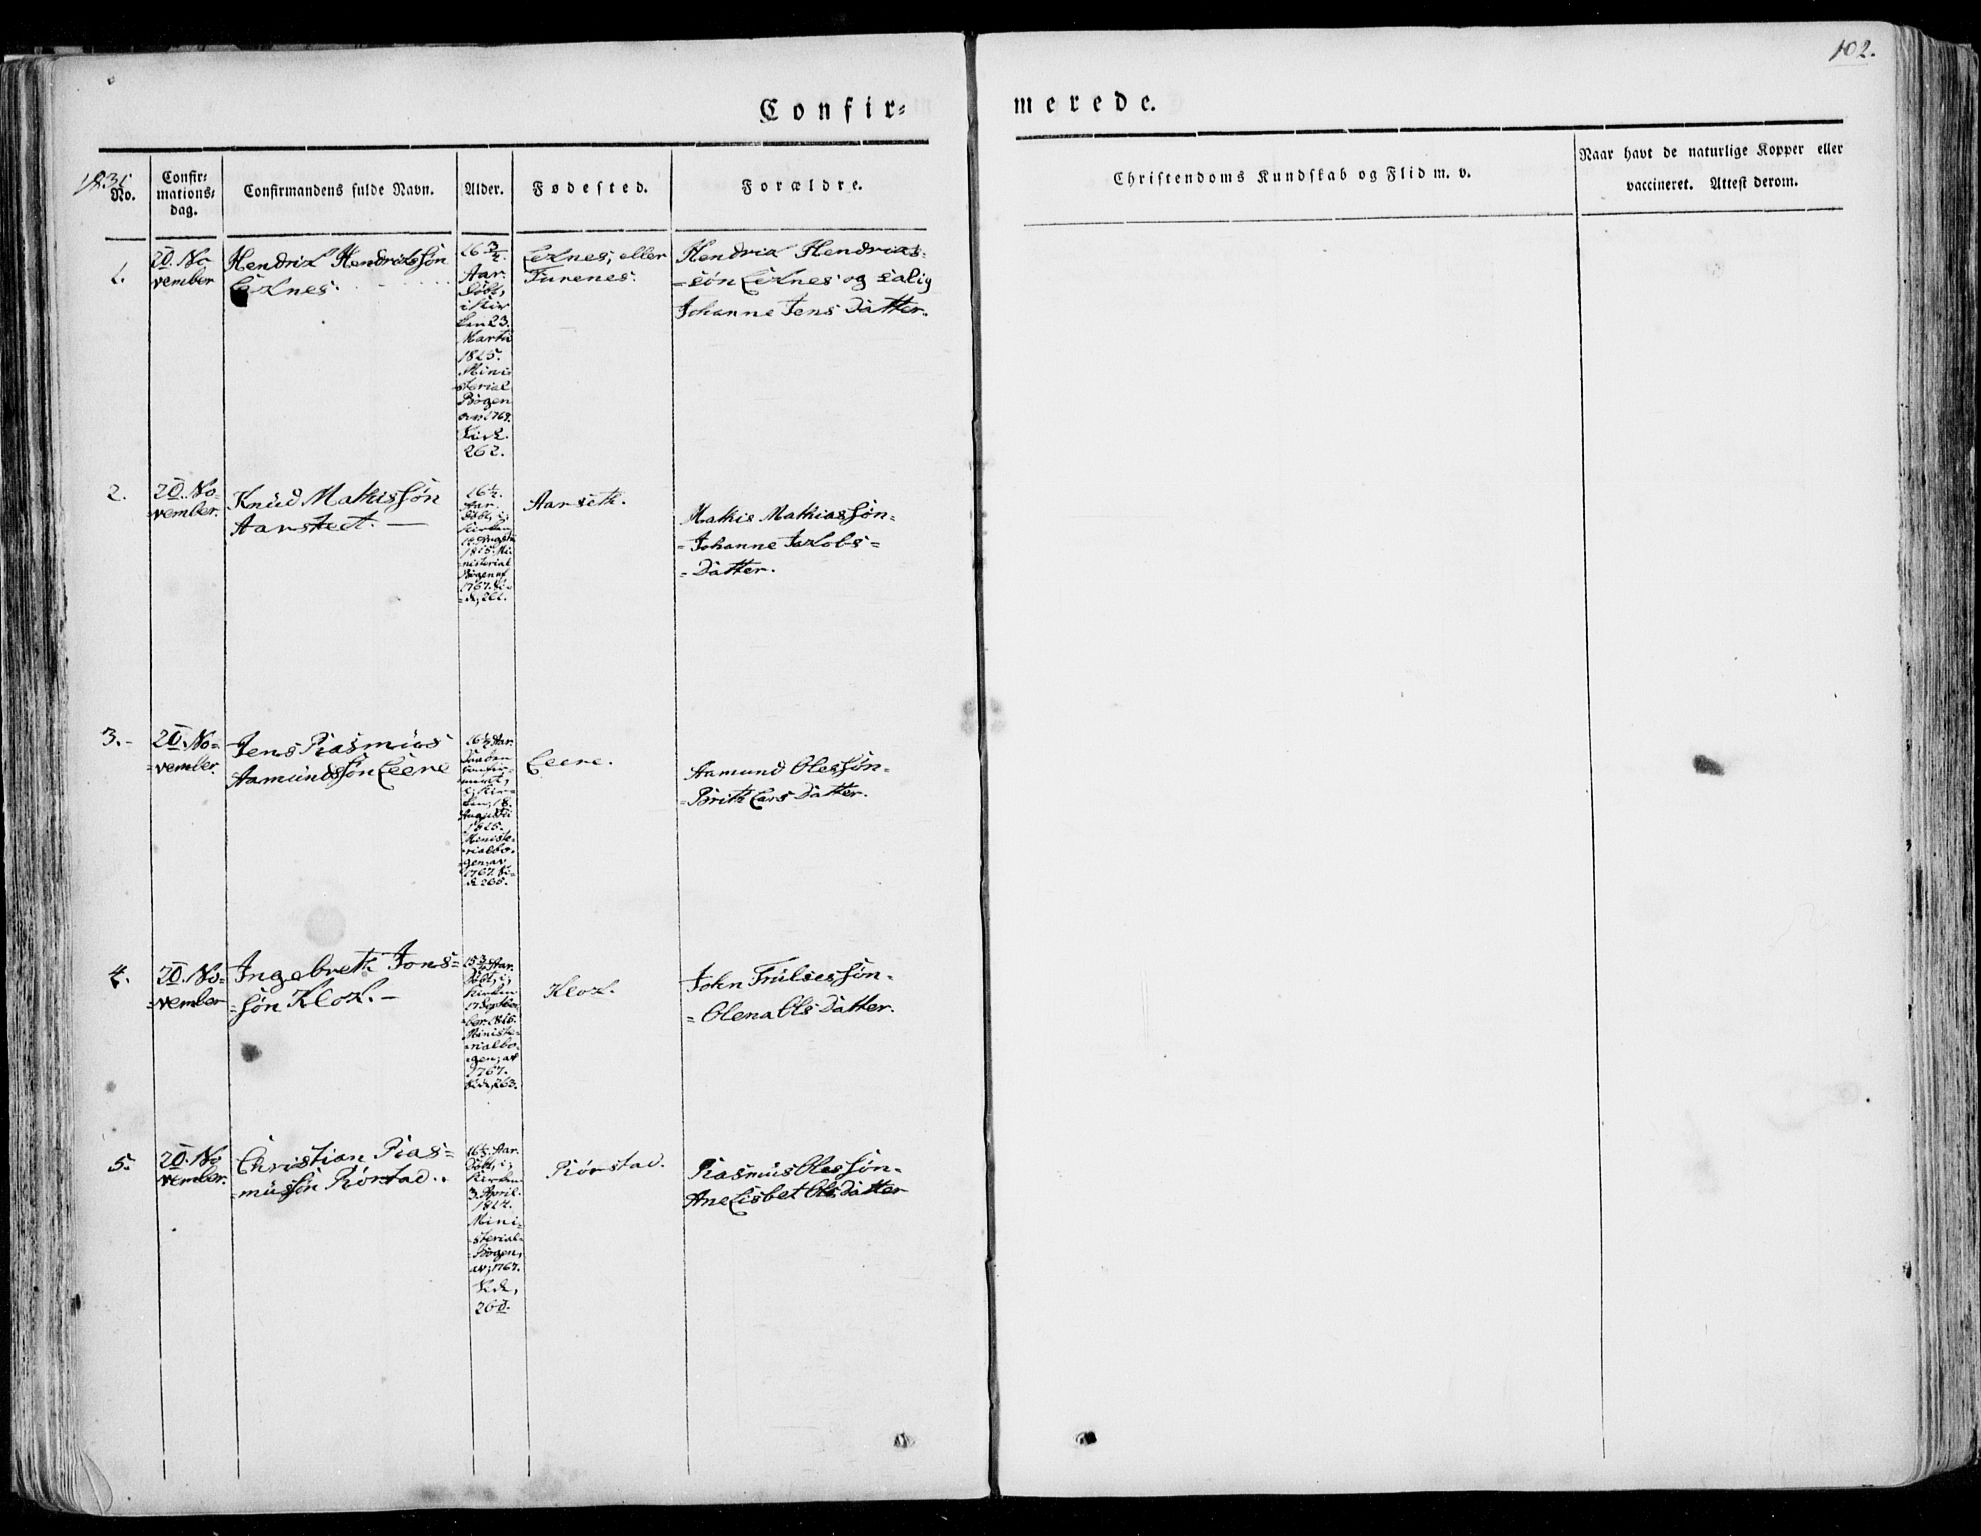 102.
Confir=
merede.
1831
No.
Confir=
mations=
dag.
Confirmandens fulde Navn.
Alder.
Fødested.
Forældre.
Christendoms Kundskab og Flid m. v.
Naar havt de naturlige Kopper eller
vaccineret. Attest derom.
1.
20. No
vember
Hendrik Hendrikssøn
Eiknes.
16 3/4.
Aar.
Døbt,
i Kir
ken 23.
Martii
1815.
Mini
sterial
Bogen
av 1767.
Side
262.
Eiknes, eller
Furenes.
Hendrik Hendriks=
=søn Eiknes og salig
Johanne Jens Datter.
2.
20. No=
vember.
Knüd Mathissøn
Aarsteet. —
16½.
Aar.
Døbt, i;
Kirken
1815. Mi
nisterial
Bogen af
1767. Si
=de, 262.
Aarseth.
Mathis Mathiassøn=
=Johanne Jakobs=
=Datter.
3.-
20. No=
=vember.
Jens Rasmüs
Aamündssøn Leere
16½ Aar.
i; Kir=
ken, 18.
Augusti
1815.
Ministe=
=rialbo=
=gen, av
1767. Si=
de 265.
Leere.
Aamund Olessøn=
=Brith Lars Datter.
4.
20. No=
=vember
Ingebreth Jons=
=søn Klok. —
15¾ Aar.
Døbt, i;
Kirken
17 Septem
=ber 1815.
Ministe=
=rialbo=
=gen, av
1767.
Side, 263.
Klok.
John Trülsessøn=
=Olena Ols Datter.
5.
20. No
vember.
Christian Ras=
=müssøn Rørstad.
16½ Aar.
Døbt, i;
Kirken
3. April.
1814.
Mini=
=sterial=
=Bogen,
av, 1767.
Side,
260.
Rørstad.
Rasmüs Olessøn=
Ane Lisbet Ols Datter